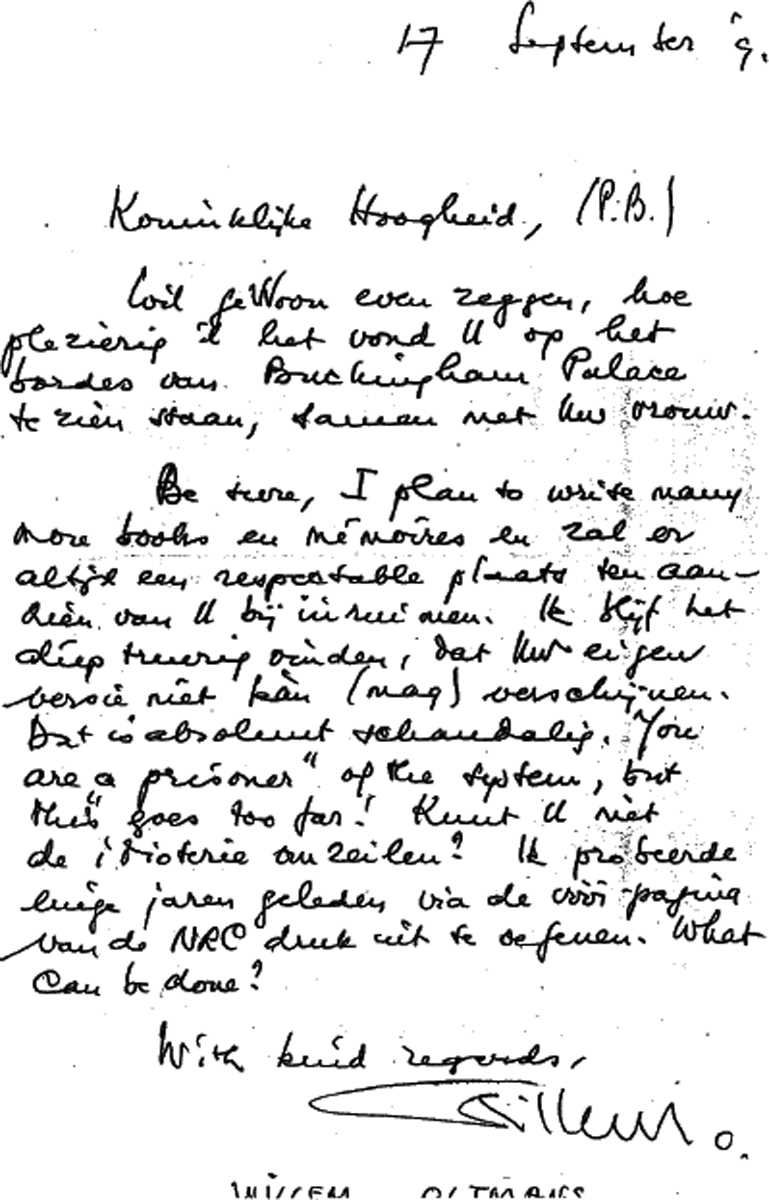 17 September '9.
Koninklijke Hoogheid, (P.B.)
Wil gewoon even zeggen, hoe
plezierig ik het vond U op het
bordes van Buckingham Palace
te zien staan, samen met Uw vrouw.
Be sure, I plan to write many
more books en mémoires en zal er
altijd een respectable plaats ten aan-
zien van U bij inruimen. Ik blijf het
diep treurig vinden, dat Uw eigen
versie niet kàn (mag) verschijnen.
Dat is absoluut schandalig. You
are "a prisoner" of the system, but
this goes too far! Kunt U niet
de idioterie omzeilen? Ik probeerde
enige jaren geleden via de vóórpagina
van de NRC druk uit te oefenen. What
can be done?
With kind regards,
Willem O.
WILLEM OLTMANS